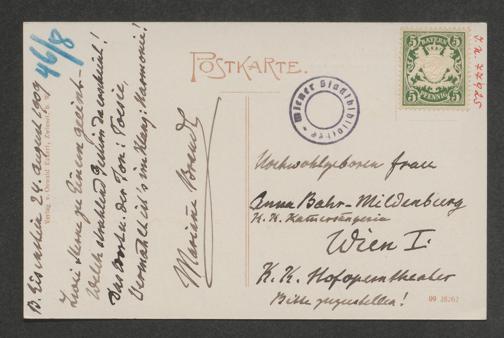 46/8
B. Eisenstein 24. August 1909
Zwei Sterne zu Einem geeint –
Welch strahlend Gestirn da erscheint!
Das Wort u. der Ton: Poesie,
Vermählt ist's im Klang: Harmonie!
Marianne Brandt
Verlag v. Oswald
POSTKARTE.
Wiener Stadtbibliothek
BAYERN
5 5
PFENNIG
5 5
Hochwohlgeboren Frau
Anna Bahr-Mildenburg
K. K. Kammersängerin
Wien I.
K. K. Hofoperntheater
Bitte zuzustellen!
09 18262